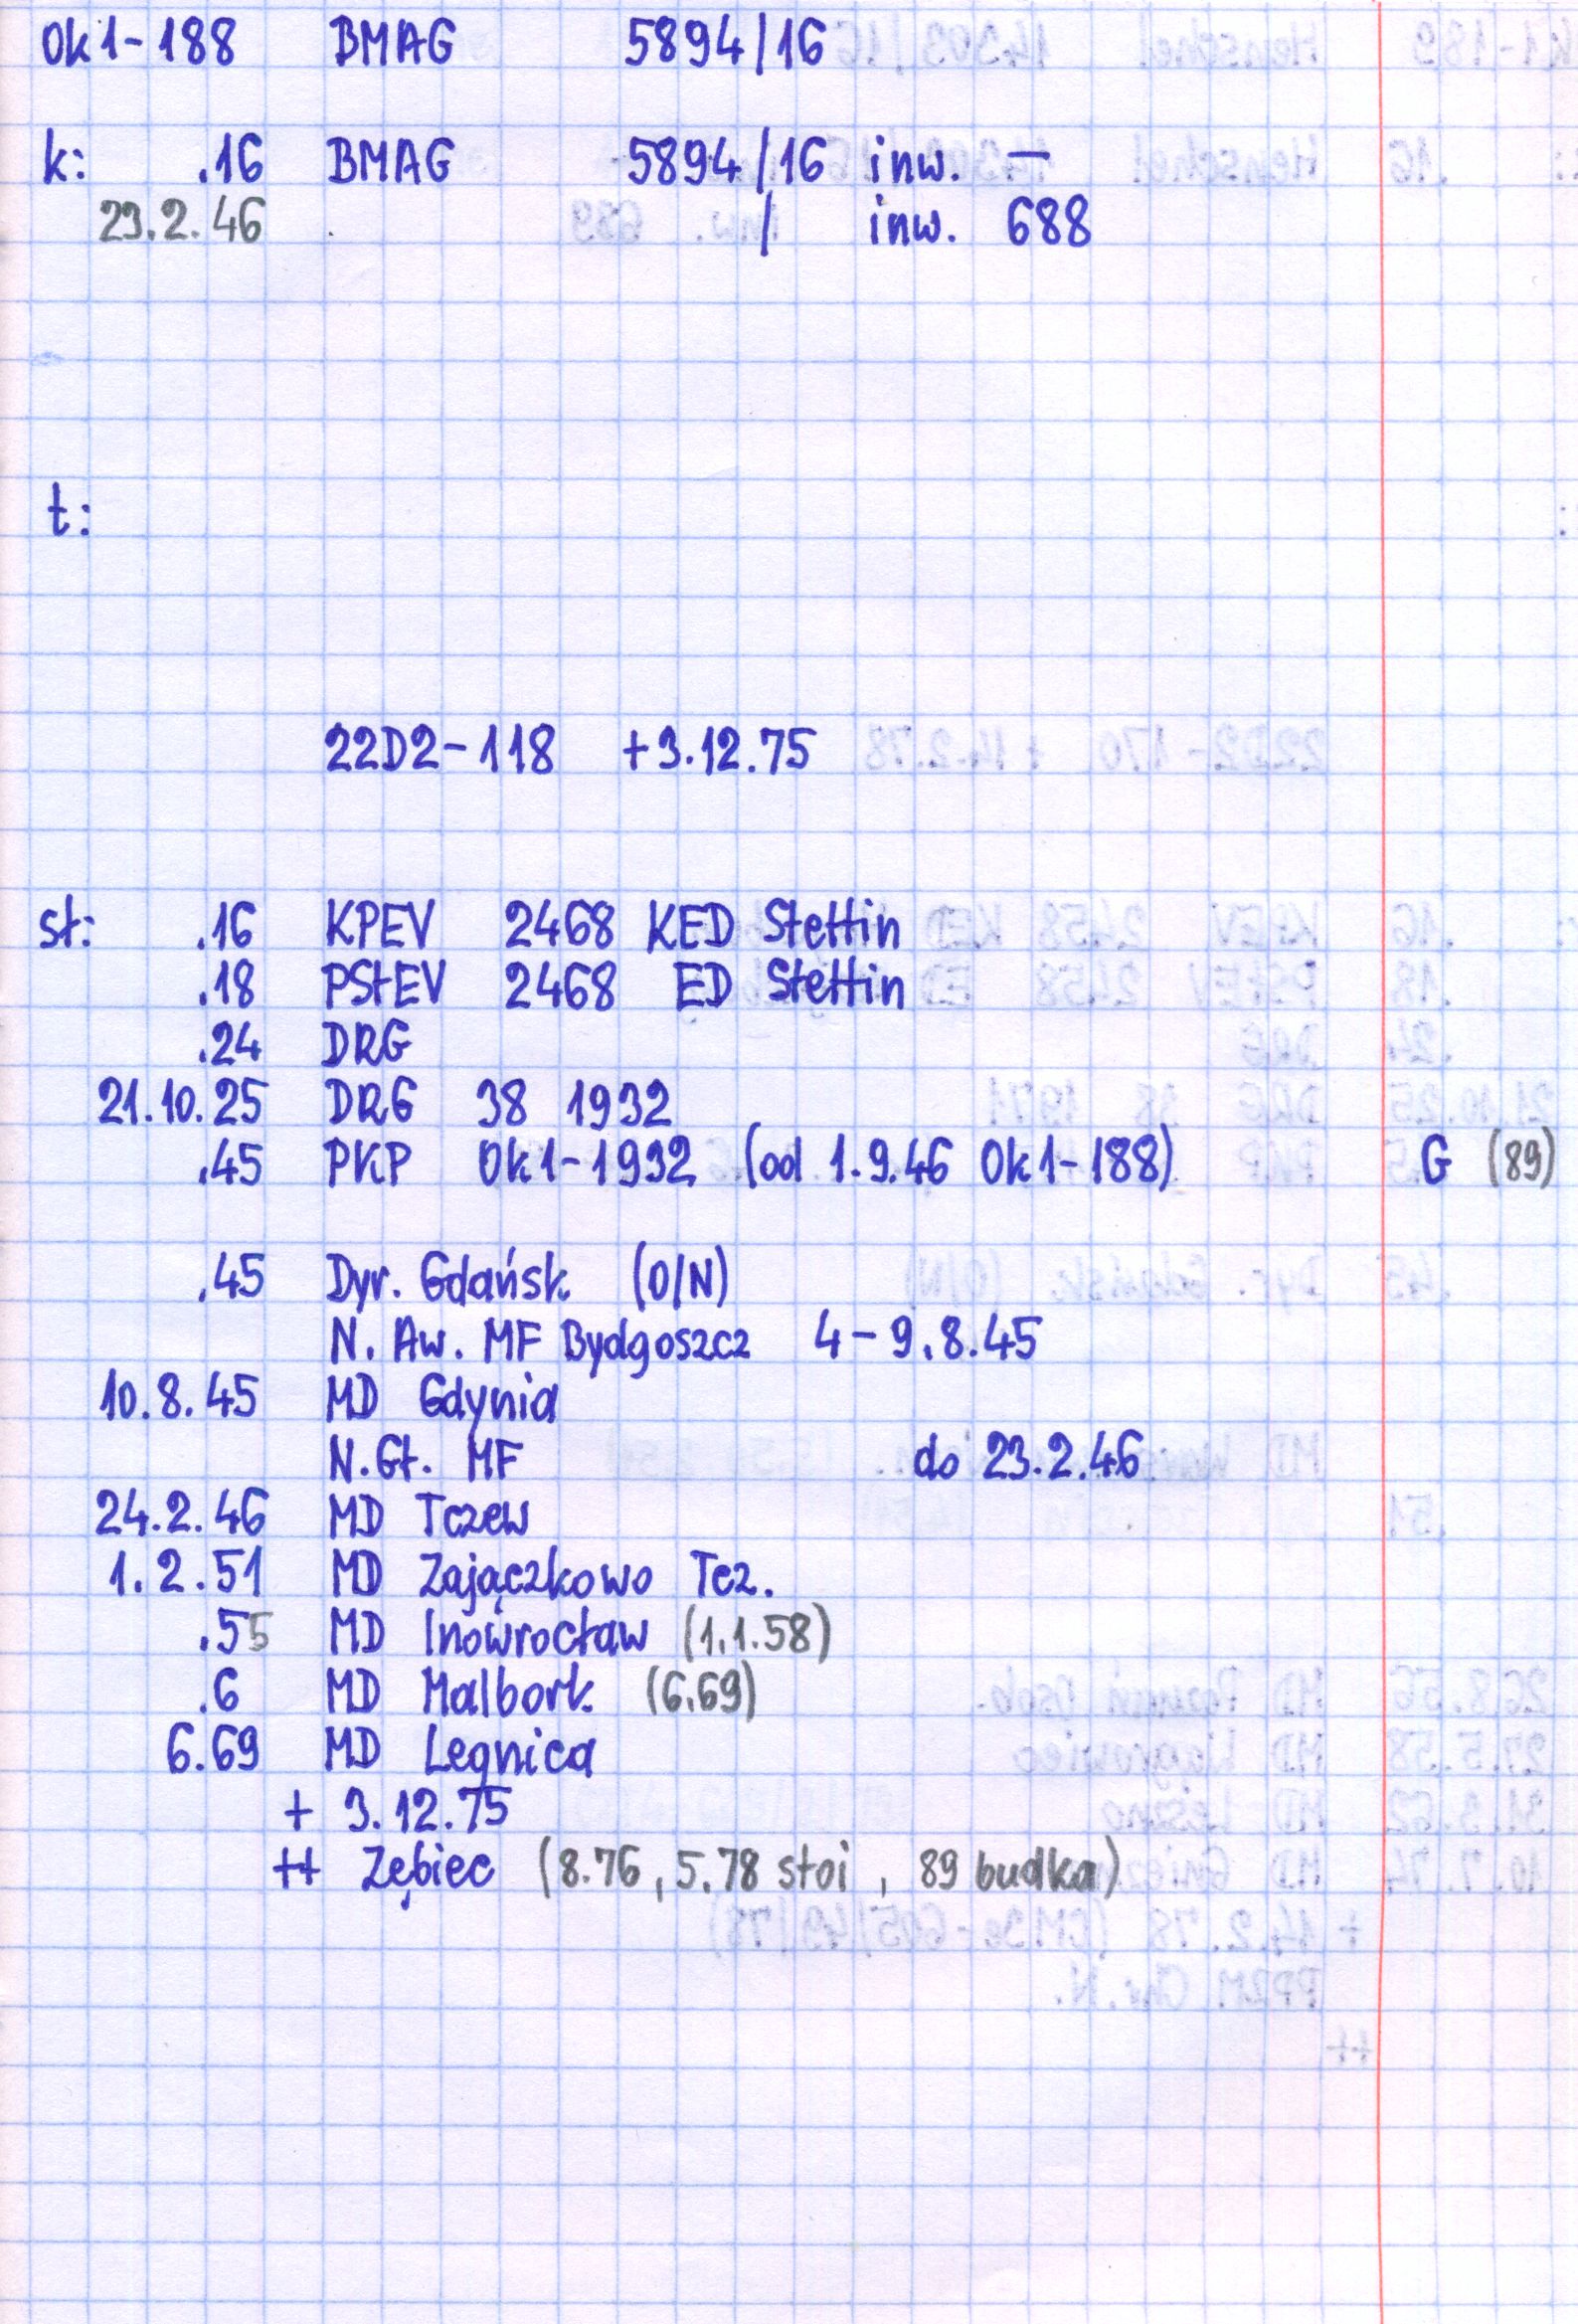 Ok1-188 BMAG 5894/16
k: .16 BMAG 5894/16 inw. —
23.2.46 / inw. 688
t:
22D2-118 +3.12.75
st: .16 KPEV 2468 KED Stettin
.18 PStEV 2468 ED Stettin
.24 DRG
21.10.25 DRG 38 1932
.45 PKP Ok1-1932 (od 1.9.46 Ok1-188) G (89)
.45 Dyr. Gdańsk (O/N)
N. Aw. MF Bydgoszcz 4-9.8.45
10.8.45 MD Gdynia
N.Gł. MF do 23.2.46
24.2.46 MD Tczew
1.2.51 MD Zajączkowo Tcz.
.55 MD Inowrocław (1.1.58)
.6 MD Malbork (6.69)
6.69 MD Legnica
+ 3.12.75
++ Zębiec (8.76, 5.78 stoi, 89 budka)